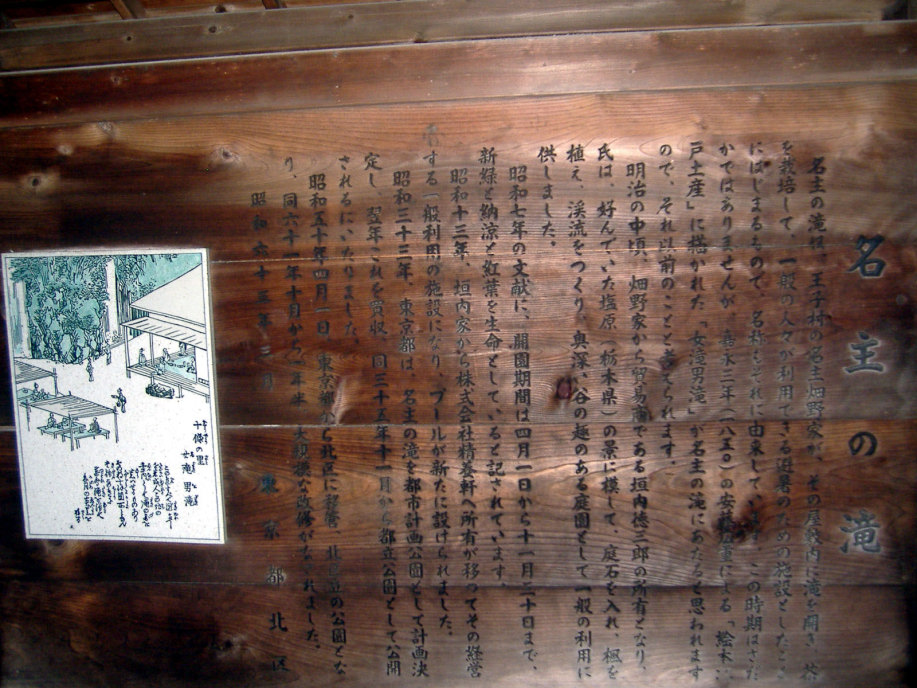 名主の滝
名主の滝は、王子村の名主畑野家が、その屋敷内に滝を開き、茶
を栽培して、一般の人々が利用できる避暑のための施設としたこと
にはじまるもので、名称もそれに由来しています。この時期はさだ
かではありませんが、嘉永三年(一八五〇)の安藤広重による「絵本江
戸土産」に描かれた「女滝男滝」が名主の滝にあたると思われますの
で、それ以前のことと考えられます。
明治の中頃、畑野家から貿易商である垣内徳三郎の所有となり、
氏は、好んでいた塩原(栃木県)の景に模して、庭石を入れ、楓を
植え、渓流をつくり、奥深い谷の趣のある庭園として一般の利用に
供しました。
昭和七年の文献に、開園期間は四月一日から十一月三十日まで、
新緑と納涼と紅葉を生命としていると記されています。
昭和十三年、垣内家から株式会社精養軒へ所有が移ってその経営
する一般利用の施設になり、プールが新たに設けられました。
昭和三十三年、東京都は、名主の滝を都市計画公園として計画決
定し、翌年これを買収、同三十五年十一月から都立公園として公開
されるにいたりました。
昭和五十年四月一日、東京都から北区に移管、北区立の公園とな
り、同六十一年十月から一年半、大規模な改修がなされました。
昭和六十三年三月
東京都北区
十條の里
女滝男滝